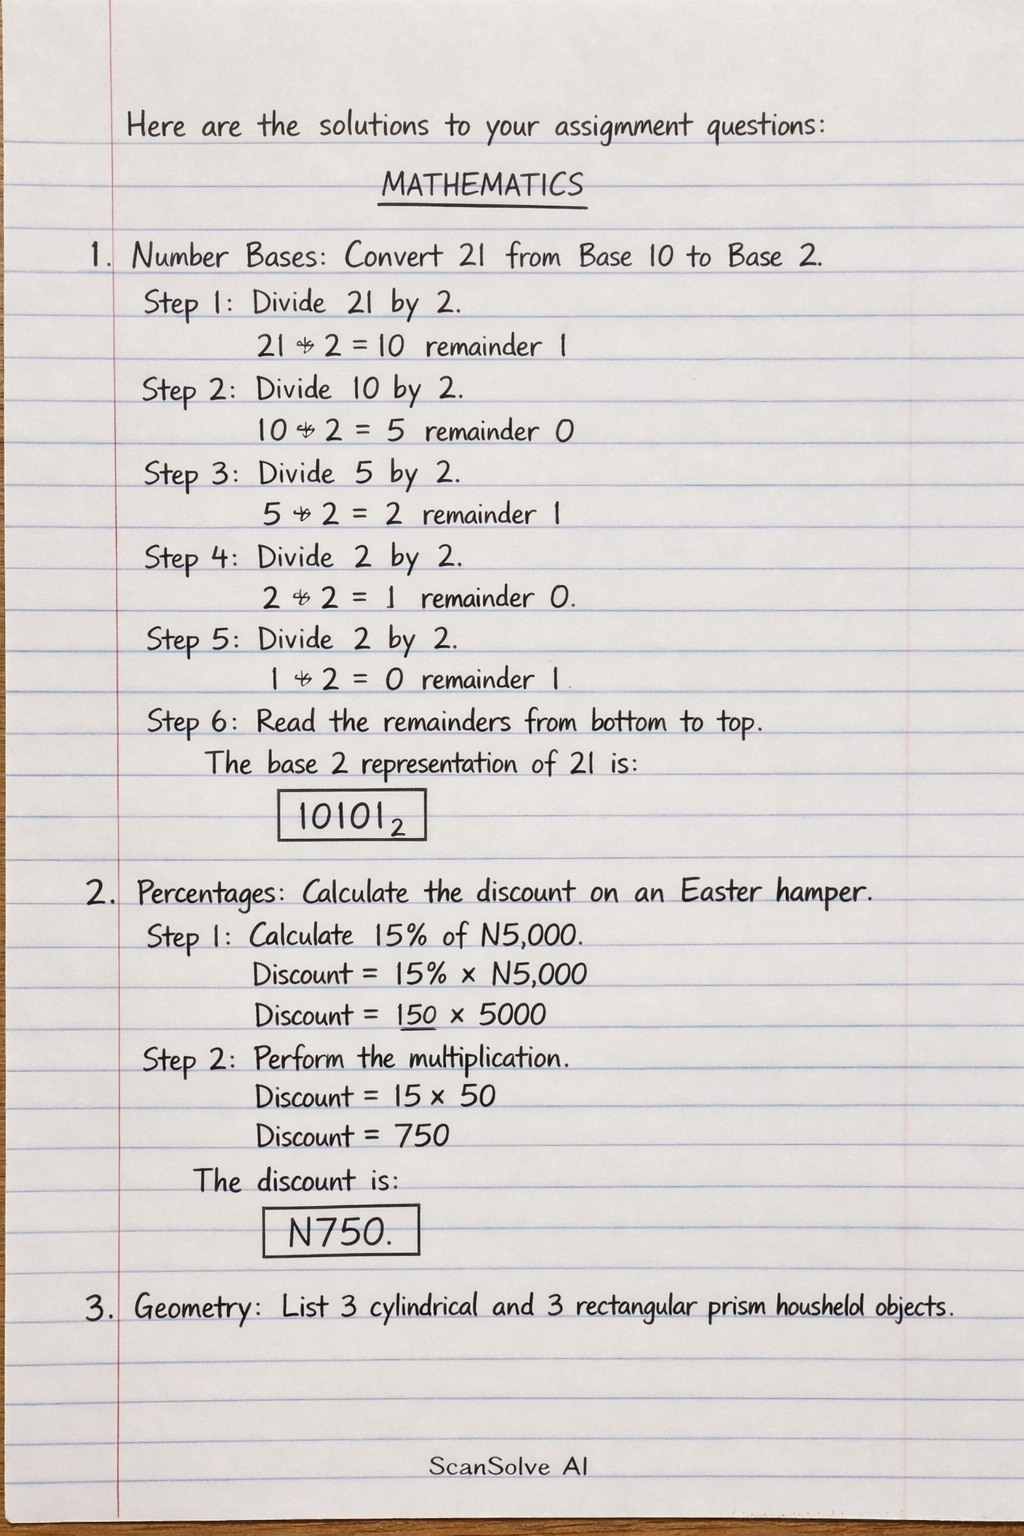 Here are the solutions to your assigmment questions:
MATHEMATICS
1. Number Bases: Convert 21 from Base 10 to Base 2.
Step 1: Divide 21 by 2.
21 ÷ 2 = 10 remainder 1
Step 2: Divide 10 by 2.
10 ÷ 2 = 5 remainder 0
Step 3: Divide 5 by 2.
5 ÷ 2 = 2 remainder 1
Step 4: Divide 2 by 2.
2 ÷ 2 = 1 remainder 0.
Step 5: Divide 2 by 2.
1 ÷ 2 = 0 remainder 1
Step 6: Read the remainders from bottom to top.
The base 2 representation of 21 is:
10101₂
2. Percentages: Calculate the discount on an Easter hamper.
Step 1: Calculate 15% of N5,000.
Discount = 15% × N5,000
Discount = 150 × 5000
Step 2: Perform the multiplication.
Discount = 15 × 50
Discount = 750
The discount is:
N750.
3. Geometry: List 3 cylindrical and 3 rectangular prism housheld objects.
ScanSolve AI